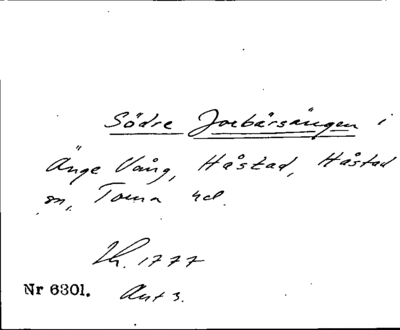 Södre Jorbärsängen i
Änge Vång, Håstad, Håstad
sn, Torna hd.
Lk. 1777
Nr 6301. Akt 3.